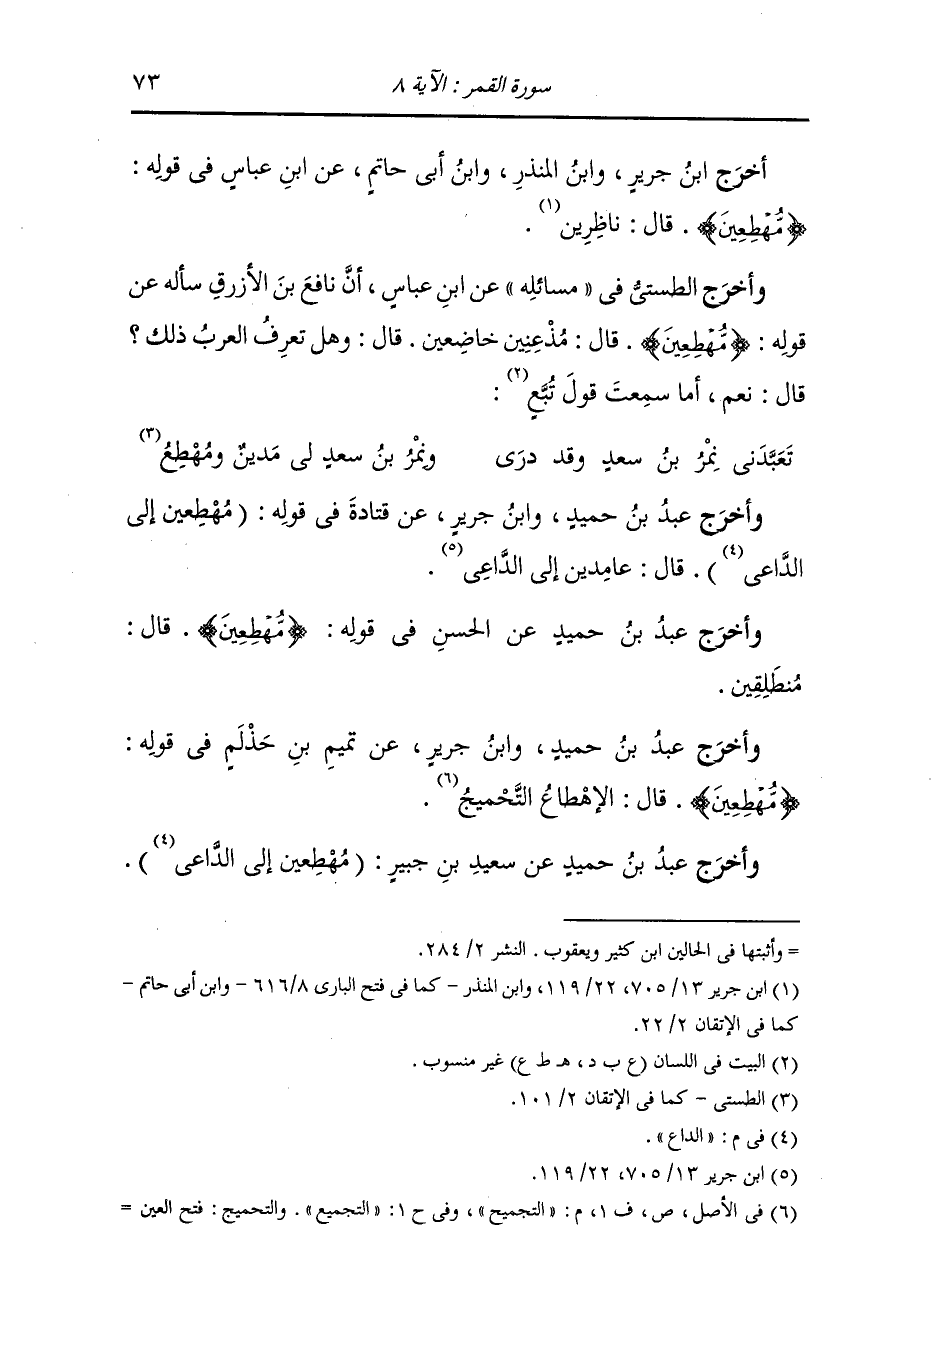 سورة القمر : الآية ٨ ٧٣
أخرَج ابنُ جريرٍ ، وابنُ المنذرِ ، وابنُ أبى حاتمٍ ، عن ابنِ عباسٍ فى قولِه :
﴿مُّهْطِعِينَ﴾ . قال : ناظِرِين(١) .
وأخرَج الطستىُّ فى « مسائلِه » عن ابنِ عباسٍ ، أنَّ نافعَ بنَ الأزرقِ سأله عن
قولِه : ﴿مُّهْطِعِينَ﴾ . قال : مُذْعِنِين خاضِعين . قال : وهل تعرِفُ العربُ ذلك ؟
قال : نعم ، أما سمِعتَ قولَ تُبَّعٍ(٢) :
تَعَبَّدَنى نِمْرُ بنُ سعدٍ وقد درَى ونِمْرُ بنُ سعدٍ لى مَدينٌ ومُهْطِعُ(٣)
وأخرَج عبدُ بنُ حميدٍ ، وابنُ جريرٍ ، عن قتادةَ فى قولِه : ( مُهْطِعين إلى
الدَّاعى(٤) ) . قال : عامِدين إلى الدَّاعِى(٥) .
وأخرَج عبدُ بنُ حميدٍ عن الحسنِ فى قولِه : ﴿مُّهْطِعِينَ﴾ . قال :
مُنطَلِقِين .
وأخرَج عبدُ بنُ حميدٍ ، وابنُ جريرٍ ، عن تميمِ بنِ حَذْلَمٍ فى قولِه :
﴿مُّهْطِعِينَ﴾ . قال : الإهْطاعُ التَّحْميجُ(٦) .
وأخرَج عبدُ بنُ حميدٍ عن سعيدِ بنِ جبيرٍ : ( مُهْطِعين إلى الدَّاعى(٤) ) .
= وأثبتها فى الحالين ابن كثير ويعقوب . النشر ٢/ ٢٨٤.
(١) ابن جرير ١٣/ ٧٠٥، ٢٢/ ١١٩، وابن المنذر - كما فى فتح البارى ٨/ ٦١٦ - وابن أبى حاتم -
كما فى الإتقان ٢/ ٢٢.
(٢) البيت فى اللسان (ع ب د ، هـ ط ع) غير منسوب .
(٣) الطستى - كما فى الإتقان ٢/ ١٠١.
(٤) فى م : « الداع » .
(٥) ابن جرير ١٣/ ٧٠٥، ٢٢/ ١١٩.
(٦) فى الأصل ، ص ، ف ١، م : « التجميح » ، وفى ح ١: « التجميع » . والتحميج : فتح العين =